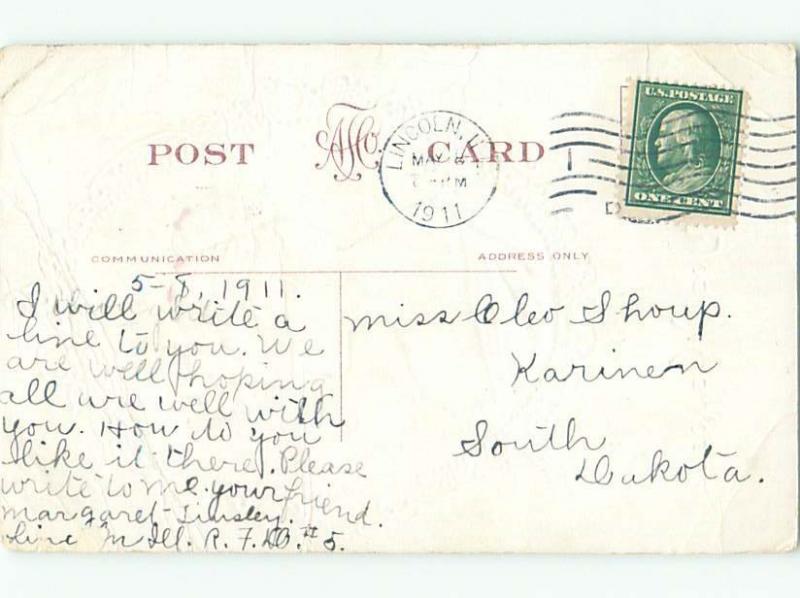 POST AHC CARD
LINCOLN, ILL.
MAY 8
M
1911
U.S. POSTAGE
ONE CENT
COMMUNICATION
ADDRESS ONLY
5-8, 1911.
I will write a
line to you. We
are well hoping
all are well with
you. How do you
like it there. Please
write to me. your friend.
Margaret Tinsley.
Linc n Ill. R. F. D. # 5.
Miss Cleo Shoup.
Karinen
South
Dakota.